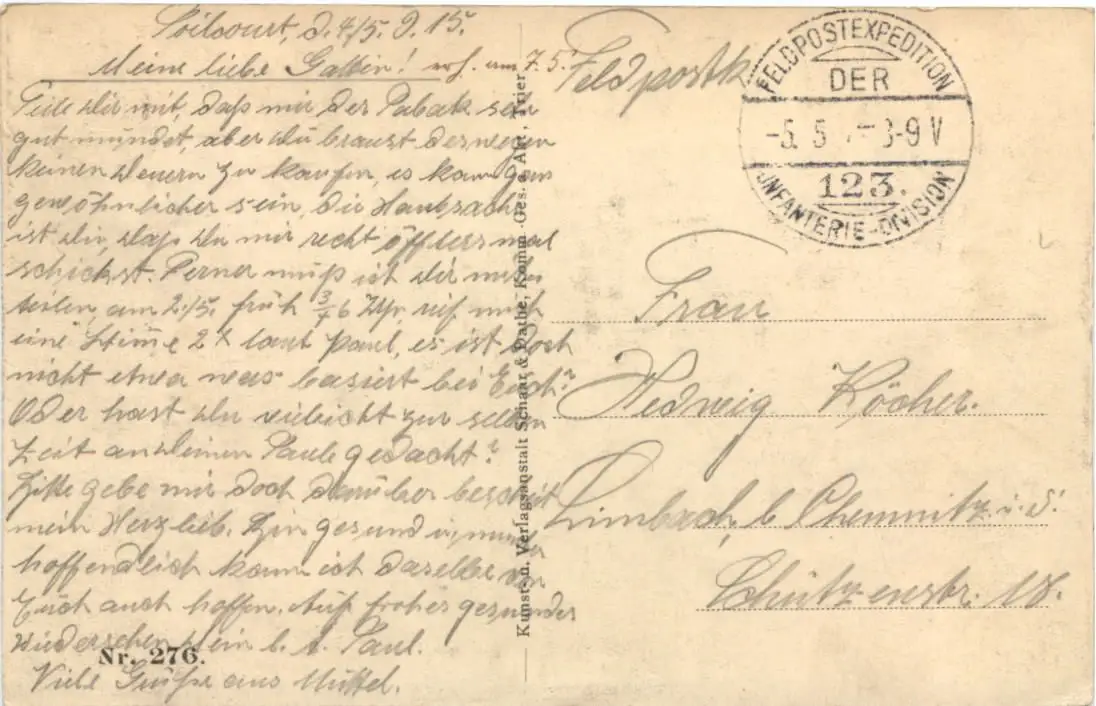 d. 4/5. 9. 15.
Meine liebe Gattin! erh. am 7.5.
Teile Dir mit, daß mir der Tabak sehr
gut mundet, aber Du braust derwegen
keinen deuern zu kaufen, es kann ganz
gewöhnlicher sein, die Haubsache
ist die, daß Du mir recht öffters mal
schickst. Ferner muß ich dir mit
teilen am 2./5. früh 3/4 6 Uhr rief mich
eine Stimme 2 x laut Paul, es ist doch
nicht etwa was basiert bei Euch?
Oder hast Du vieleicht zur selben
Zeit an Deinen Paul gedacht?
Bitte gebe mir doch darüber bescheit
mein Herzlieb. Bin gesund u. munter
hoffendlich kann ich dasselbe von
Euch auch hoffen. Auf frohes gesundes
Wiedersehen Dein l. Paul.
Viele Grüße aus
Nr. 276.
Kunst- u. Verlagsanstalt Schaar & Dathe, Komm.-Ges. a. Akt., Trier
Feldpostk
FELDPOSTEXPEDITION
DER
-5. 5 8-9 V
123.
INFANTERIE-DIVISION
Frau
Hedwig Köcher.
Limbach, b Chemnitz i. S.
Schützenstr. 18.